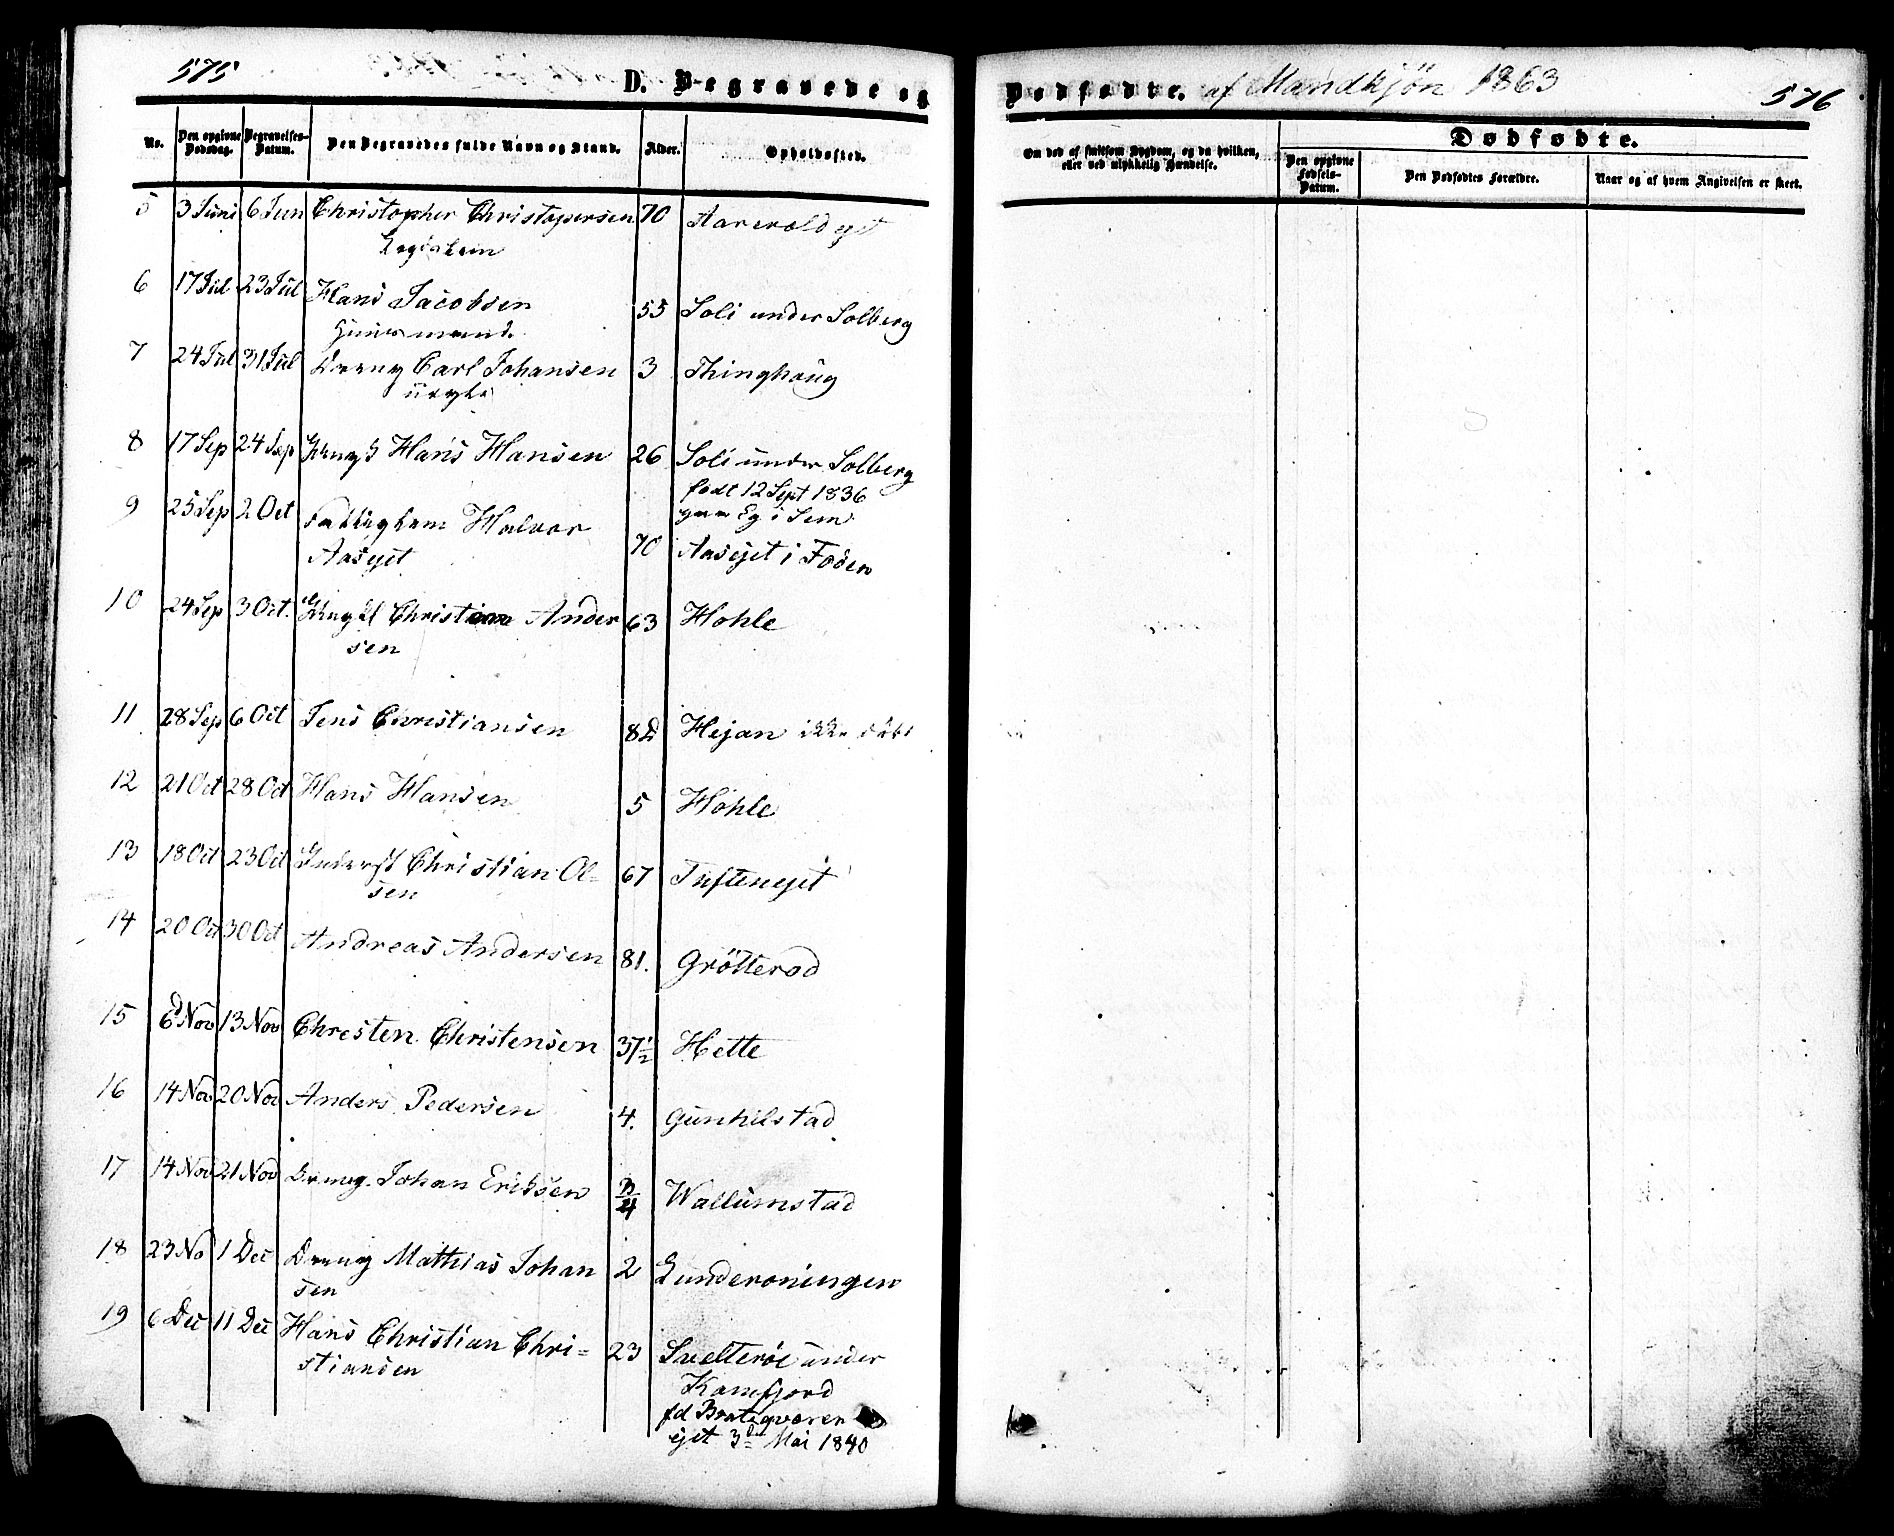 575
D. Begravede og
No. Den opgivne Dødsdag. Begravelses-Datum. Den Begravedes fulde Navn og Stand. Alder. Opholdssted.
5 3 Juni 6 Jun Christopher Christopersen 70 Aarevold ejet
Logislem
6 17 Jul 23 Jul Hans Jacobsen 55 Soli under Solberg
Huusmand.
7 24 Jul 31 Jul Dreng Carl Johansen 3 Thinghaug
8 17 Sep 24 Sep Ungk Hans Hansen 26 Soli under Solberg
født 12 Sept 1836
Eg i Sem
9 25 Sep 2 Oct Fattiglem Halvor
Aasejet 70 Aasejet i Foden
10 24 Sep 3 Oct. Christian Ander 63 Hohle
sen
11 28 Sep 6 Oct Jens Christiansen 8 D Hejan ikke døbt
12 21 Oct 28 Oct Hans Hansen 5 Hohle
13 18 Oct 23 Oct Inderst Christian Ol- 67 Tuftenejet
sen
14 20 Oct 30 Oct Andreas Andersen 81. Grötterød
15 6 Nov 13 Nov Christen Christensen 37 1/2 Hette
16 14 Nov 20 Nov Anders Pedersen 4. Gunhilstad
17 14 Nov 21 Nov Dreng Johan Eriksen 3/4 Wallumstad
18 23 No 1 Dec Dreng Mathias Johan 2 Gunderoningen
sen
19 6 Dec 11 Dec Hans Christian Chri= 23 Svelteröe under
stiansen
Kamfjord
fd Brategværen
ejet 3die Mai 1840
Dødfødte. af Mandkjön 1863
576
Om død af smitsom Sygdom, og da hvilken,
eller ved ulykkelig Hændelse.
Dødfødte.
Den opgivne Fødsels-Datum. Den Dødfødtes Forældre. Naar og af hvem Angivelsen er skeet.